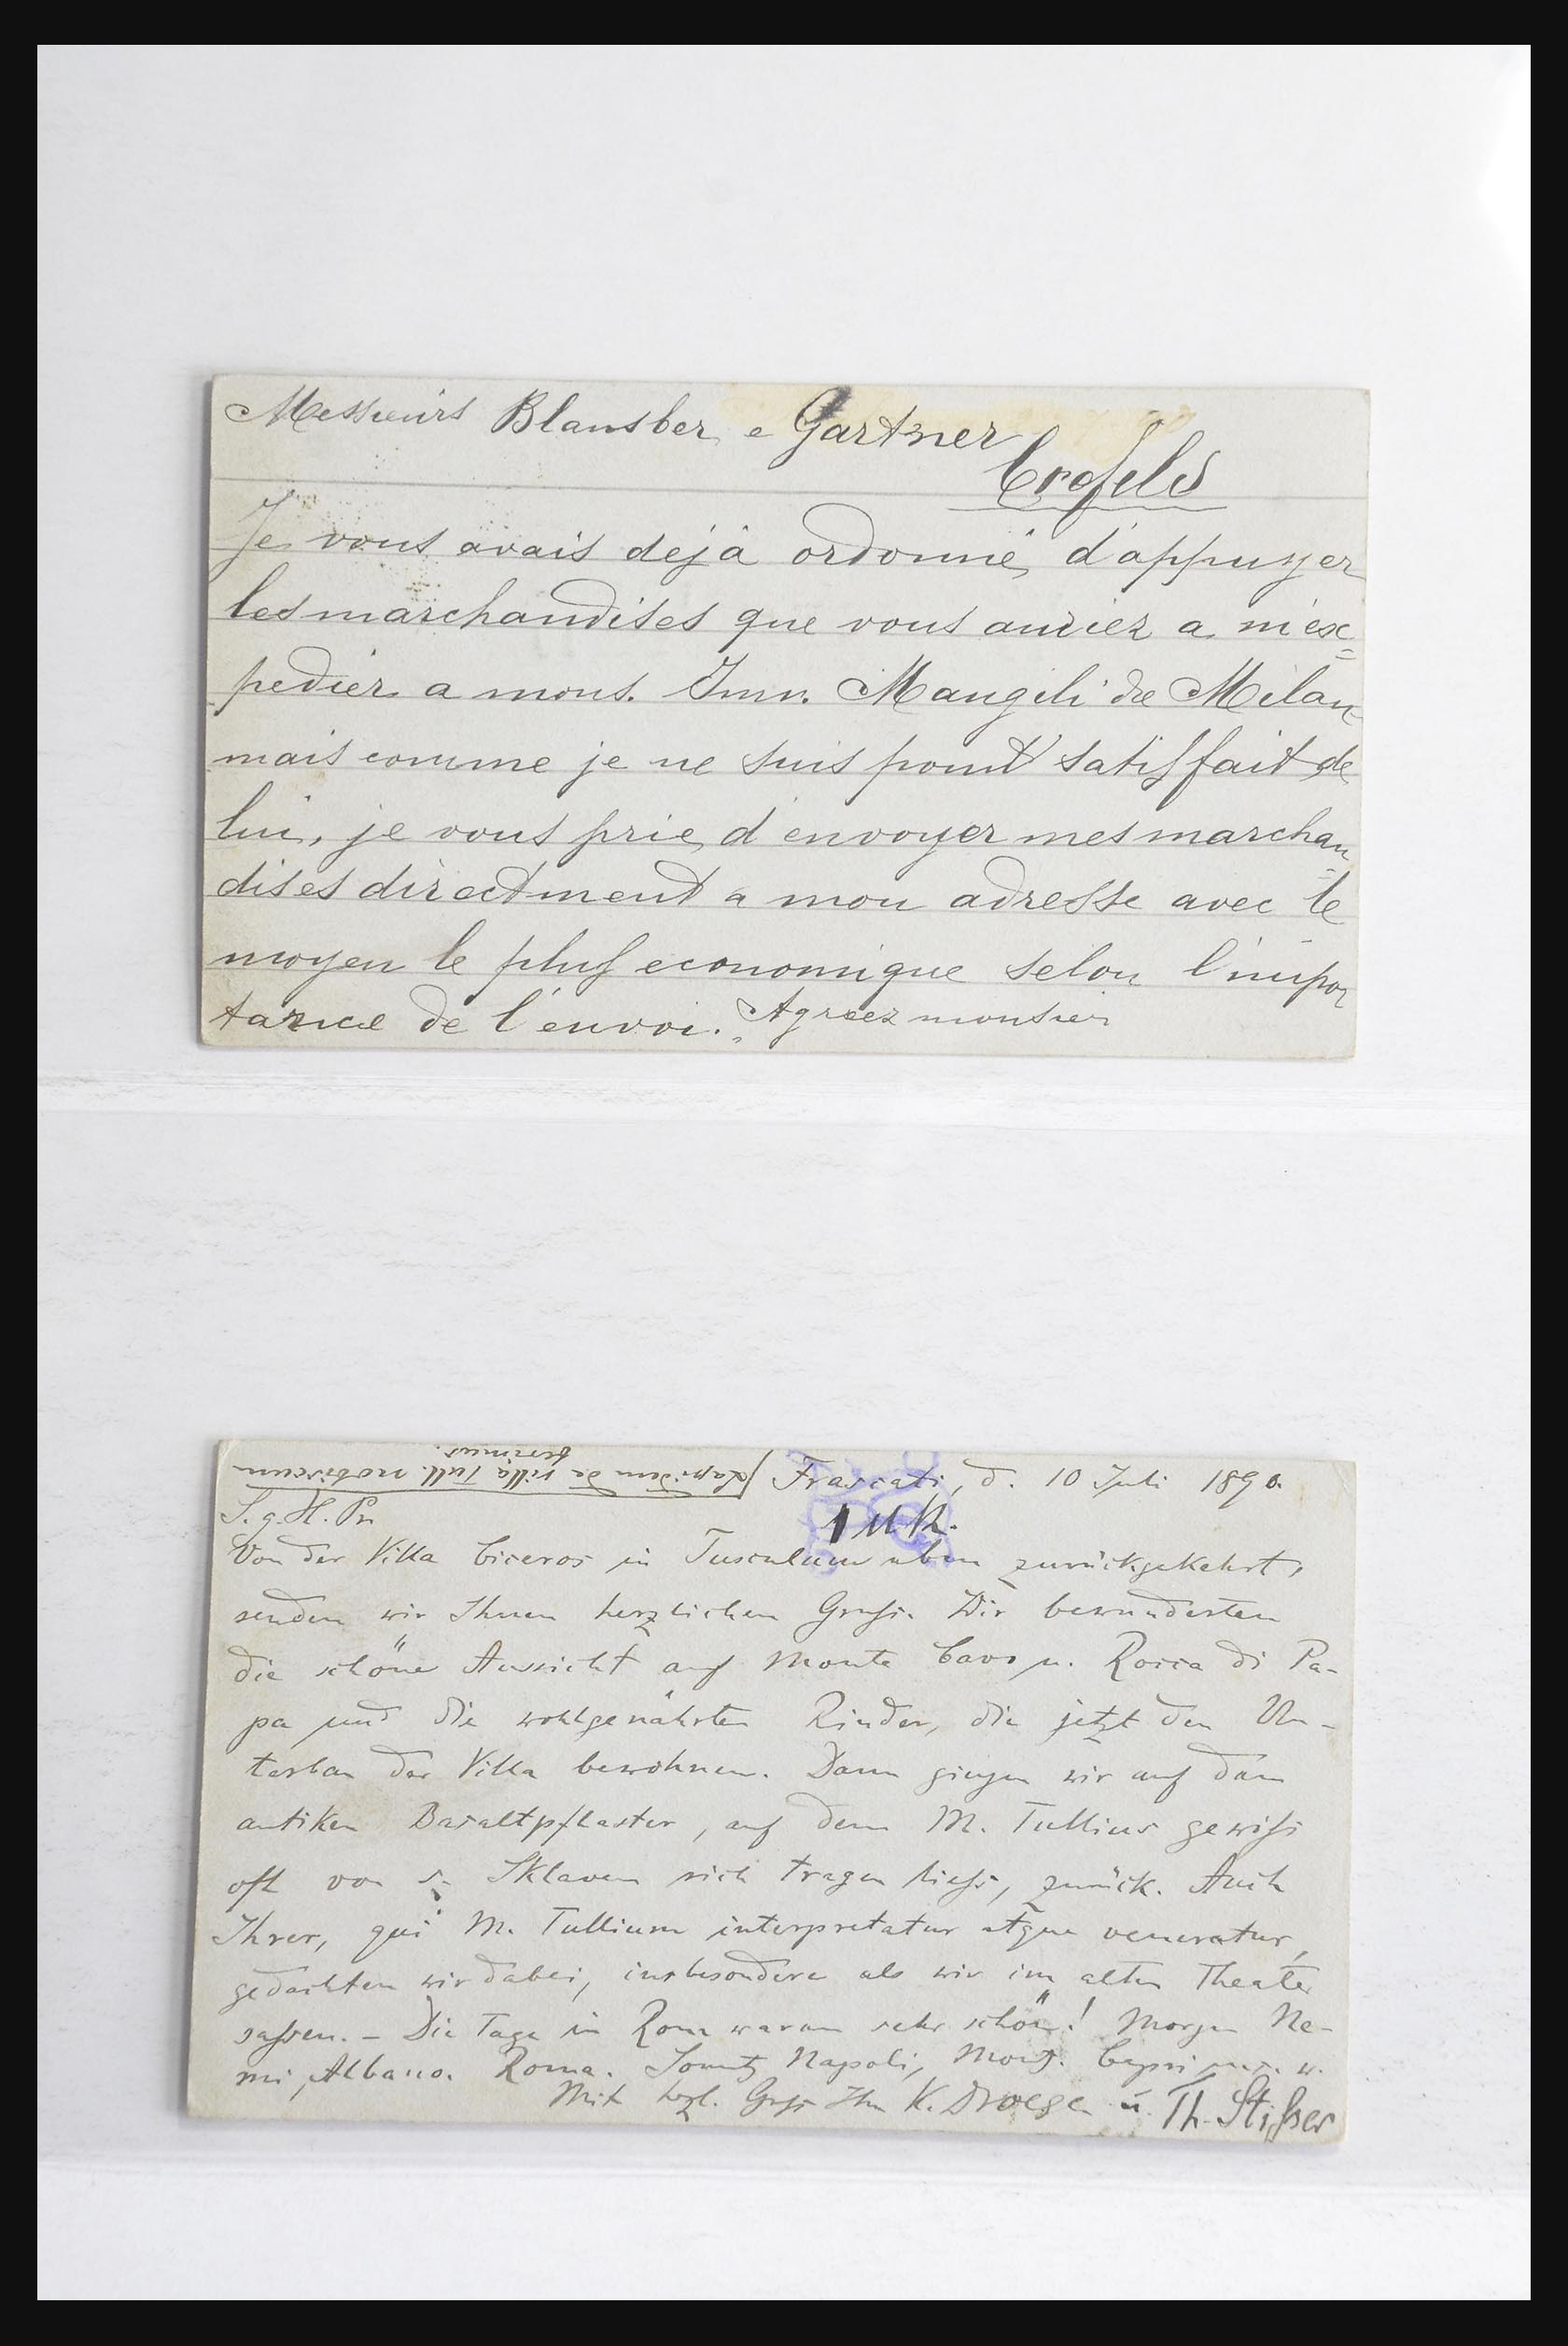 Messieurs Blansber e Gartner
Crefeld
Je vous avais dejà ordonné d'appuyer
les marchandises que vous auriez a m'ex=
pedier a mons. Inn. Mangili de Milan
mais comme je ne suis point satisfait de
lui, je vous prie d'envoyer mes marchan
dises directment a mon adresse avec le
moyen le plus economique selon l'impor
tance de l'envoi. Agreez monsieur
Lapidem de villa Tull. nobiscum
ferimus.
Frascati, d. 10 Juli 1890.
S. g. H. Pr.
1 Mk.
Von der Villa Ciceros in Tusculum eben zurückgekehrt,
senden wir Ihnen herzlichen Gruß. Wir bewunderten
die schöne Aussicht auf Monte Cavo u. Rocca di Pa-
pa und die wohlgenährten Rinder, die jetzt den Un-
terbau der Villa bewohnen. Dann gingen wir auf dem
antiken Basaltpflaster, auf dem M. Tullius gewiß
oft von s. Sklaven sich tragen ließ, zurück. Auch
Ihrer, qui M. Tullium interpretatur atque veneratur,
gedachten wir dabei, insbesondere als wir im alten Theater
saßen. - Die Tage in Rom waren sehr schön! Morgen Ne-
mi, Albano. Roma. Sonntg Napoli, Capri
Mit hzl. Gruß Ihr K. Droege u. Th. Stißer